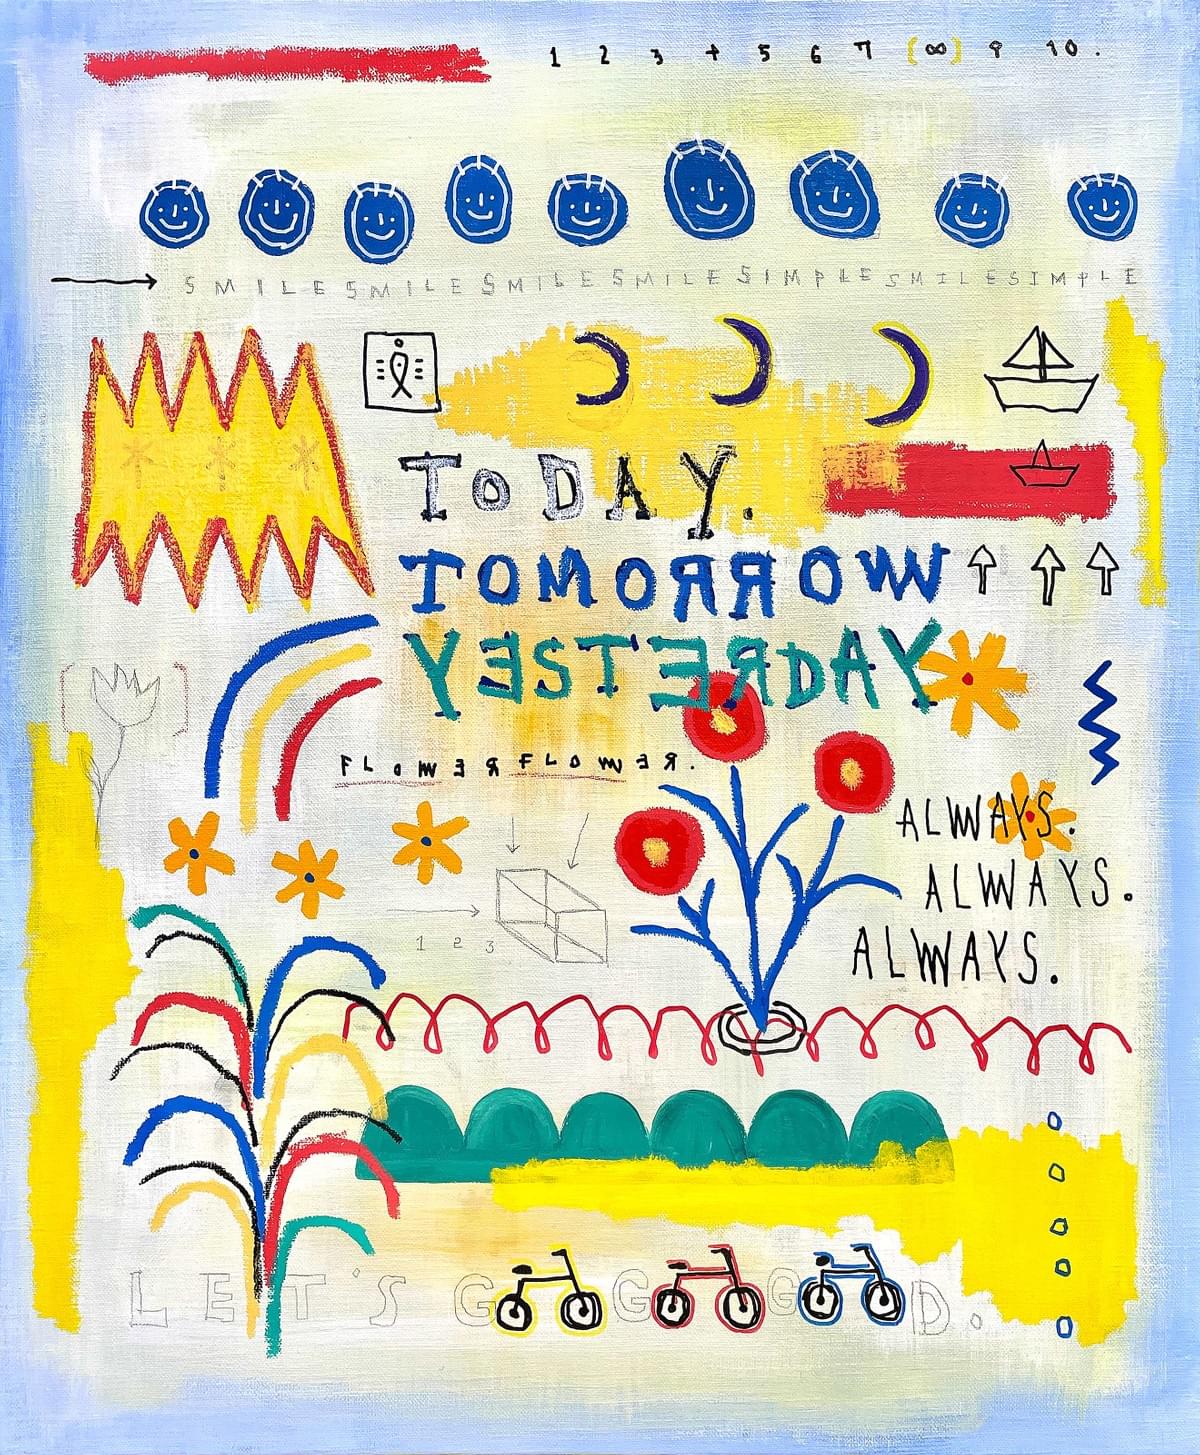 1 2 3 4 5 6 7 (∞) 9 10.
SMILESMILESMILESMILESIMPLESMILESIMPLE
ToDAY.
TOMORROW
YESTERDAY
FLOWERFLOWER.
ALWAYS.
ALWAYS.
ALWAYS.
1 2 3
LET'S G G G D.